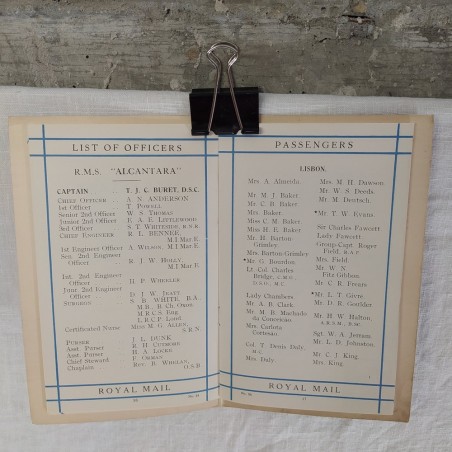 LIST OF OFFICERS
R.M.S. "ALCANTARA"
CAPTAIN T. J. C. BURET, D.S.C.
CHIEF OFFICER A. N. ANDERSON
1st Officer T. POWELL
Senior 2nd Officer W. S. THOMAS
Junior 2nd Officer E. A. E. LITTLEWOOD
3rd Officer S. T. WHITESIDE, R.N.R.
CHIEF ENGINEER R. L. BENNEE,
M.I.Mar.E.
1st Engineer Officer A. WILSON, M.I.Mar.E.
Sen. 2nd Engineer
Officer R. J. W. HOLLY,
M.I.Mar.E.
Officer H. P. WHEELER
Officer D. J. W.
SURGEON S. B. WHITE, B.A.
M.B., B.Ch. Oxon
M.R.C.S. Eng
L.R.C.P. Lond
Certificated Nurse Miss M. G. ALLEN,
S.R.N.
PURSER J. L. DUNK
Asst. Purser
Asst. Purser H. A. LOCKE
Chief Steward
Chaplain Rev. R. WHELAN,
ROYAL MAIL
PASSENGERS
LISBON.
Mrs. A. Almeida.
Mr. M. J. Baker
Mr. C. B. Baker
Mrs. Baker.
Miss C. M. Baker
Miss H. E. Baker
Mr. H. Burton-
Grimley
Mrs. Burton-Grimley.
Lt. Col. Charles
Bridge, C.M.G.,
D.S.O., M.C.
Lady Chambers
Mr. A. B. Clark.
Mr. M. B. Machado
da Conceicao
Mrs. Carlota
Cortesao
Col. T. Denis Daly,
M.C.
Mrs. Daly.
Mrs. M. H. Dawson
Mr. W. S. Deeds.
Mr. M. Deutsch.
*Mr. T. W. Evans.
Sir Charles Fawcett
Lady Fawcett
Group-Capt. Roger
Field, R.A.F.
Mrs. Field
Mr. W. N.
Fitz Gibbon.
Mr. C. R. Frears
Mr. H. W. Halton
Sgt. W. A. Jemam
Mr. L. D. Johnston.
Mr. C. J. King
Mrs. King.
ROYAL MAIL